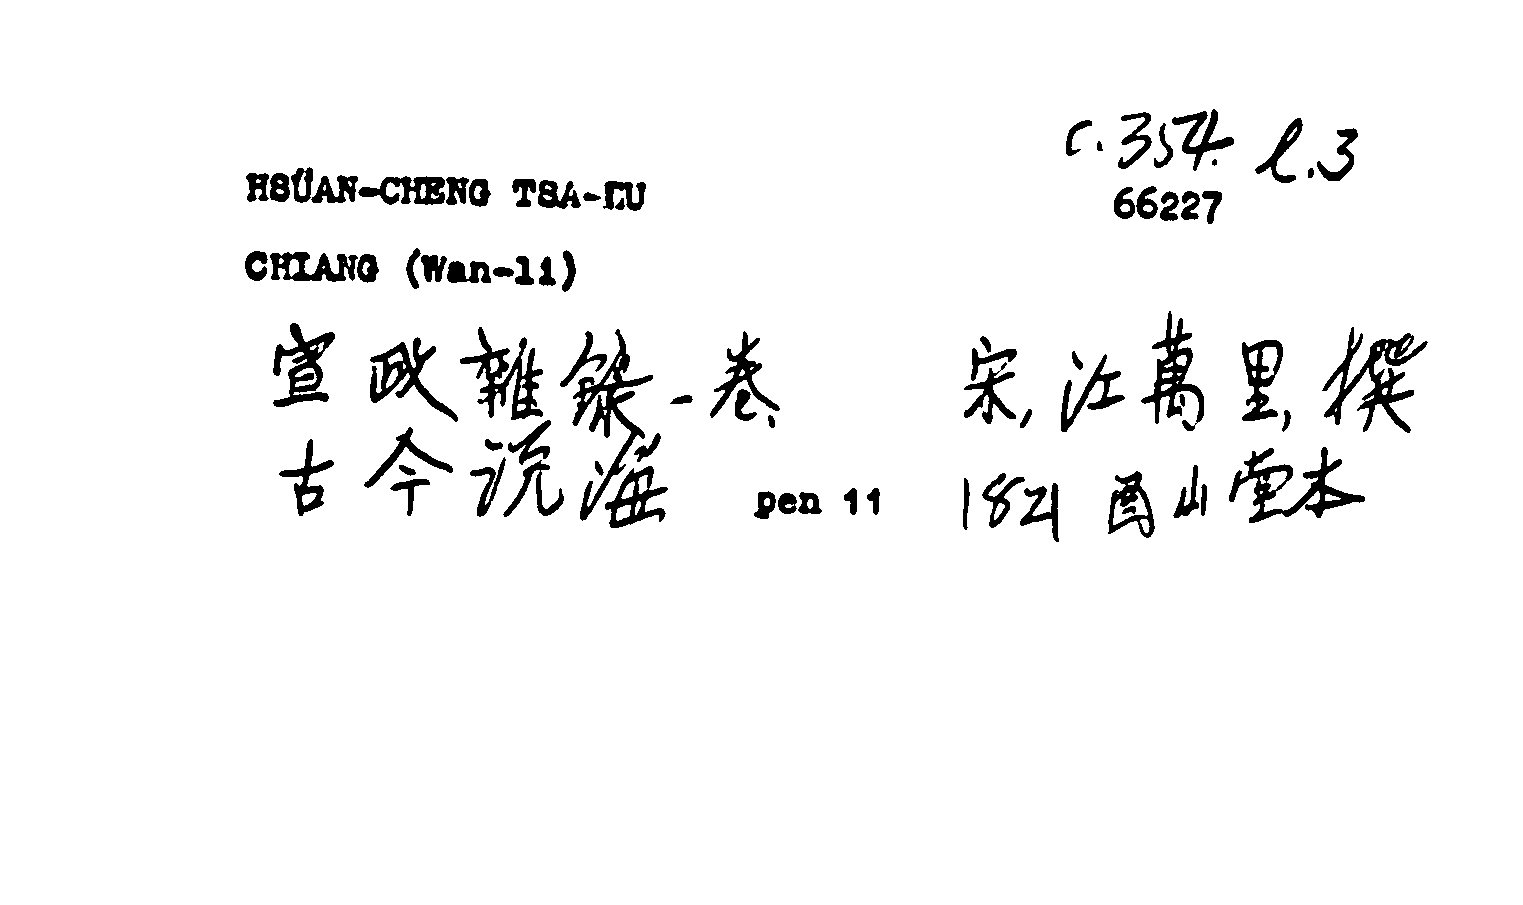 c.354. l.3
66227
HSÜAN-CHENG TSA-LU
CHIANG (Wan-li)
宣政雜錄一卷 宋,江萬里,撰
古今说海 pen 11 1821 酉山堂本